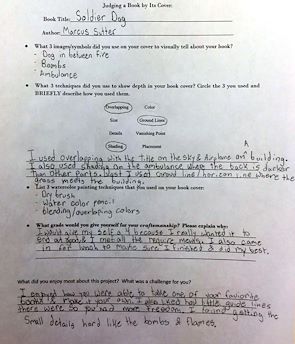 Judging a Book by Its Cover:
Book Title: Soldier Dog
Author: Marcus Sutter
• What 3 images/symbols did you use on your cover to visually tell about your book?
- Dog in between fire
- Bombs
- Ambulance
• What 3 techniques did you use to show depth in your book cover? Circle the 3 you used and
BRIEFLY describe how you used them.
Overlapping Color
Size Ground Lines
Details Vanishing Point
Shading Placement
A
I used overlapping with the title on the sky & Airplane on building.
I also used shading on the ambulance where the back is darker
than other parts. I used Ground line/horizon line where the
grass meets the building.
• List 3 watercolor painting techniques that you used on your book cover:
- Dry brush
- Water color pencil
- blending/overlaping colors
• What grade would you give yourself for your craftsmanship? Please explain why:
I would give my self a 4 because I really wanted it to
end up good & I met all the require ments. I also came
in for lunch to make sure I finished & did my best.
What did you enjoy most about this project? What was a challenge for you?
I enjoyed how you were able to take one of your favorite
books & make it your own. I also liked how little guide lines
there were so you had more freedom. I found getting the
small details hard like the bombs & flames.